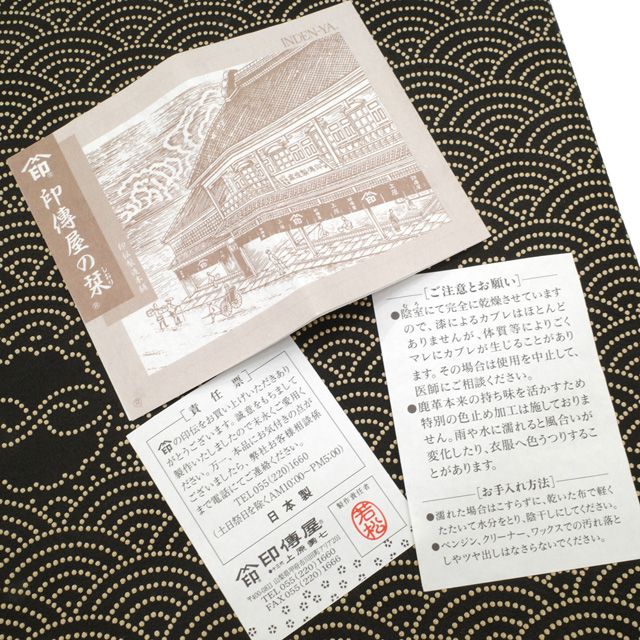 INDEN-YA
印傳屋の栞
[責任票]
の印伝をお買い上げいただきあり
がとうございます。誠意をもちまして
製作いたしましたので末永くご愛用く
ださい。万一、本品にお気付きの点が
ございましたら、弊社お客様相談係
まで電話にてご連絡ください。
TEL055(220)1660
(土日祭日を除くAM10:00~PM5:00)
日本製
製作責任者
若松
印傳屋
上原勇七
TEL 055(220)1660
FAX 055(220)1666
[ご注意とお願い]
●陰室にて完全に乾燥させています
ので、漆によるカブレはほとんど
ありませんが、体質等によりごく
マレにカブレが生じることがあり
ます。その場合は使用を中止して、
医師にご相談ください。
●鹿革本来の持ち味を活かすため
特別の色止め加工は施しておりま
せん。雨や水に濡れると風合いが
変化したり、衣服へ色うつりするこ
とがあります。
[お手入れ方法]
●濡れた場合はこすらずに、乾いた布で軽く
たたいて水分をとり、陰干しにしてください。
●ベンジン、クリーナー、ワックスでの汚れ落と
しやツヤ出しはなさらないでください。